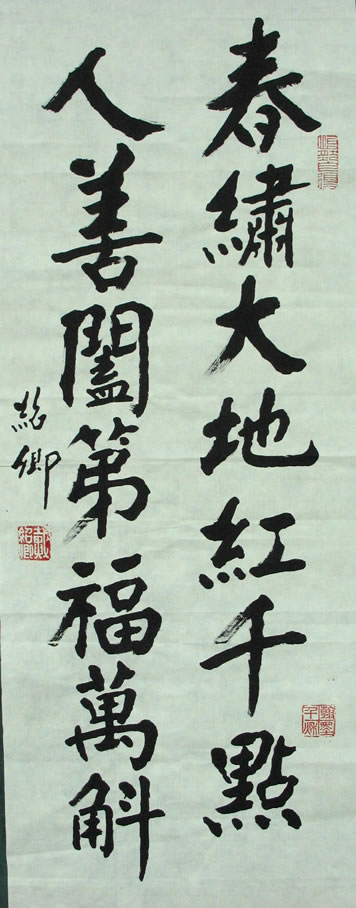 春繡大地紅千點
人善闔第福萬斛
紹卿